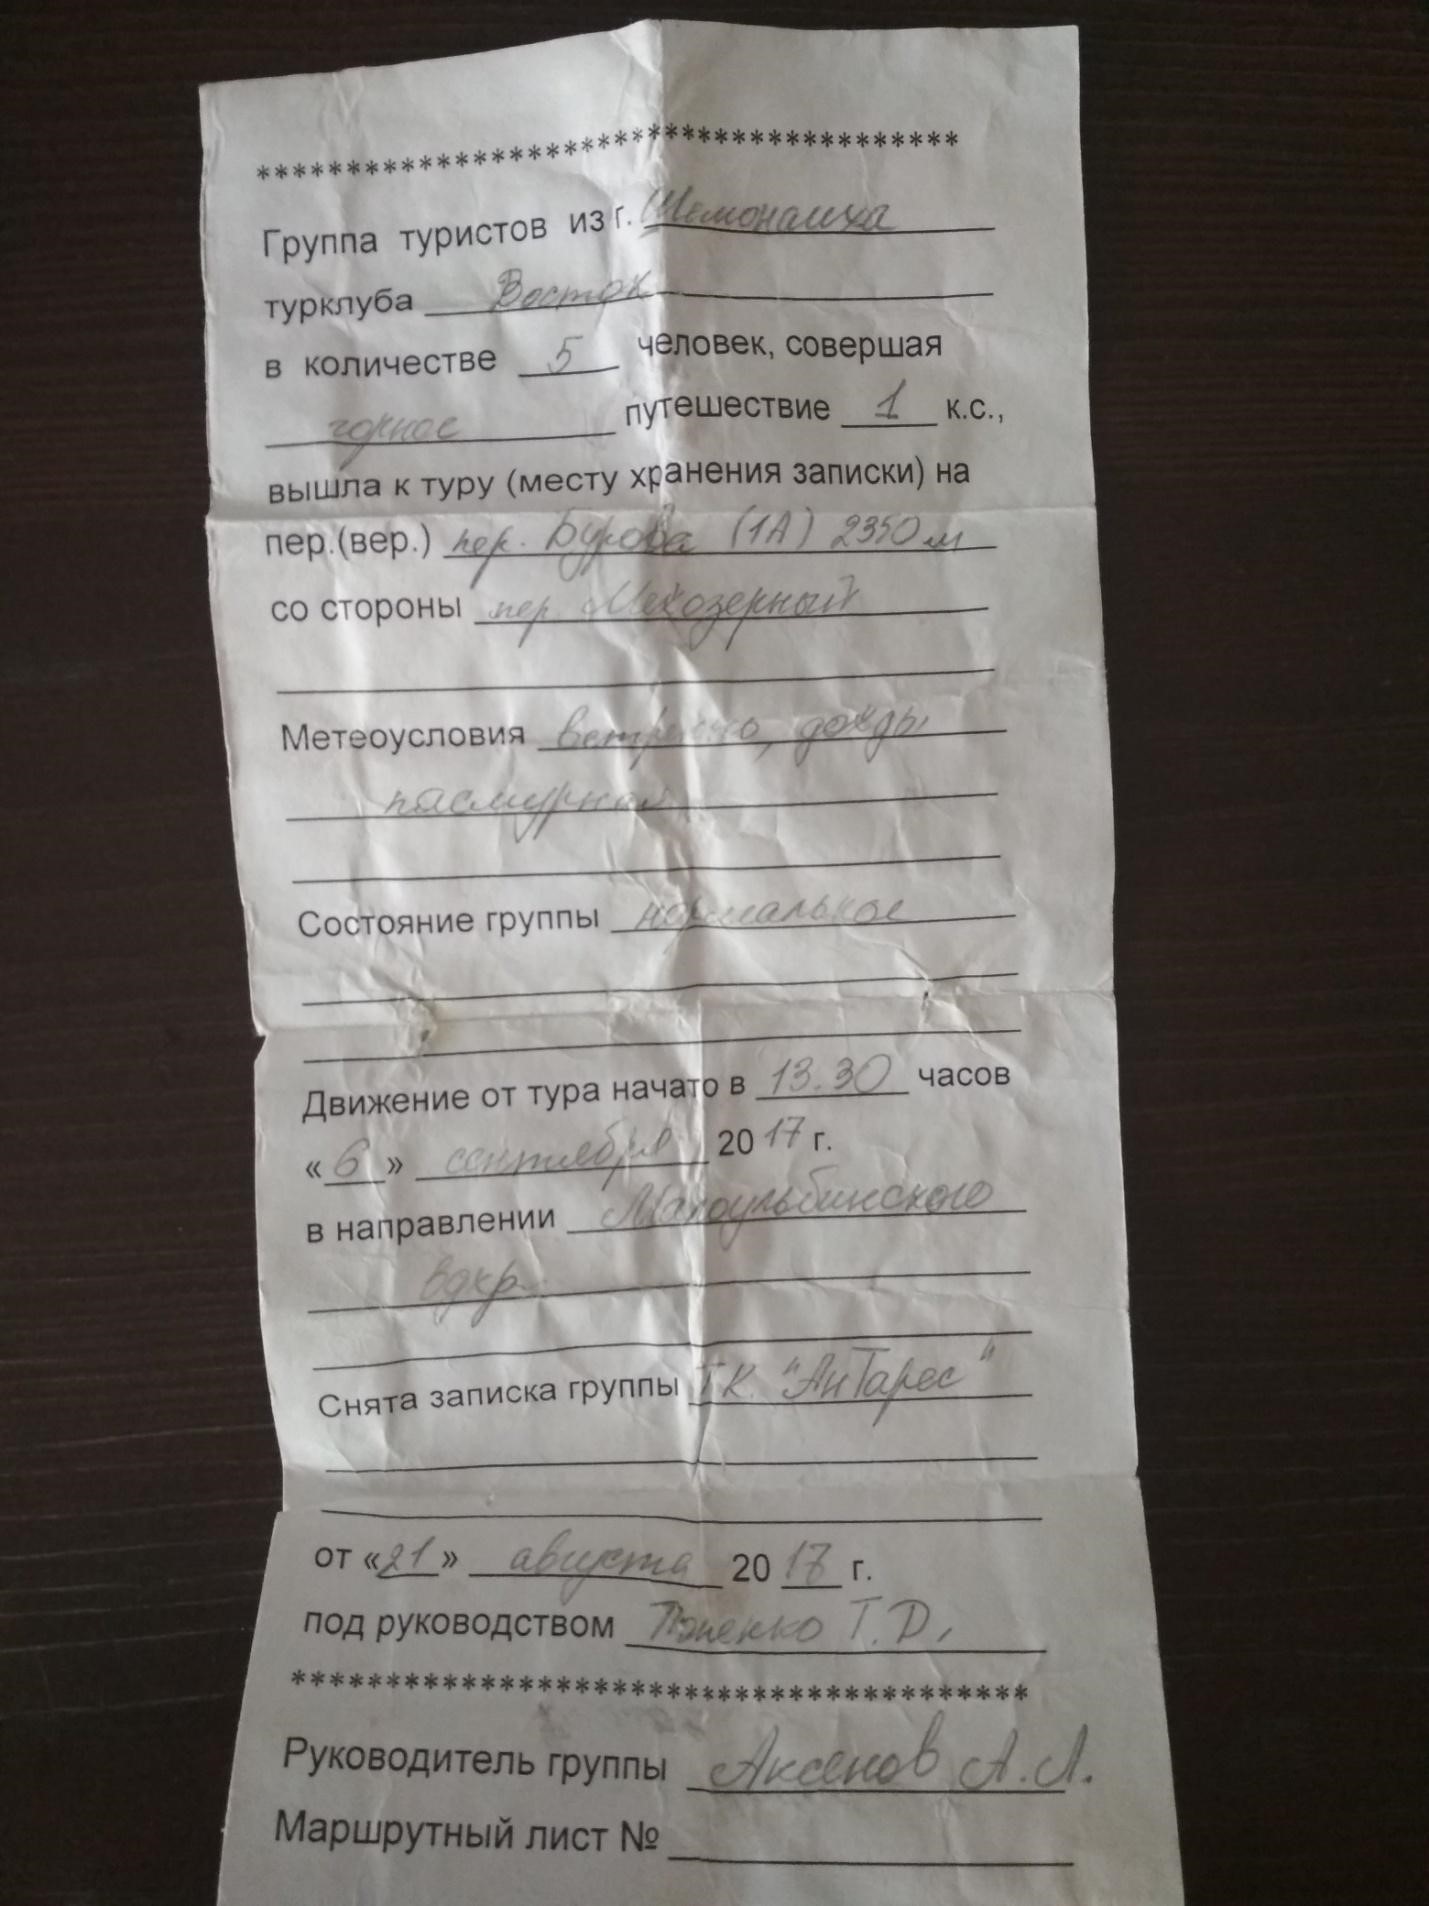 ****************************************
Группа туристов из г. Шемонаиха
турклуба Восток
в количестве 5 человек, совершая
горное путешествие 1 к.с.,
вышла к туру (месту хранения записки) на
пер.(вер.) пер. Бурова (1А) 2350 м
со стороны пер.
Метеоусловия ветренно, дожды
пасмурная
Состояние группы нормальное
Движение от тура начато в 13.30 часов
«6» сентября 2017 г.
в направлении Малоульбинского
вдхр.
Снята записка группы Т.К. "Антарес"
от «21» августа 2017 г.
под руководством Т.D.
****************************************
Руководитель группы Аксенов А.Л.
Маршрутный лист №